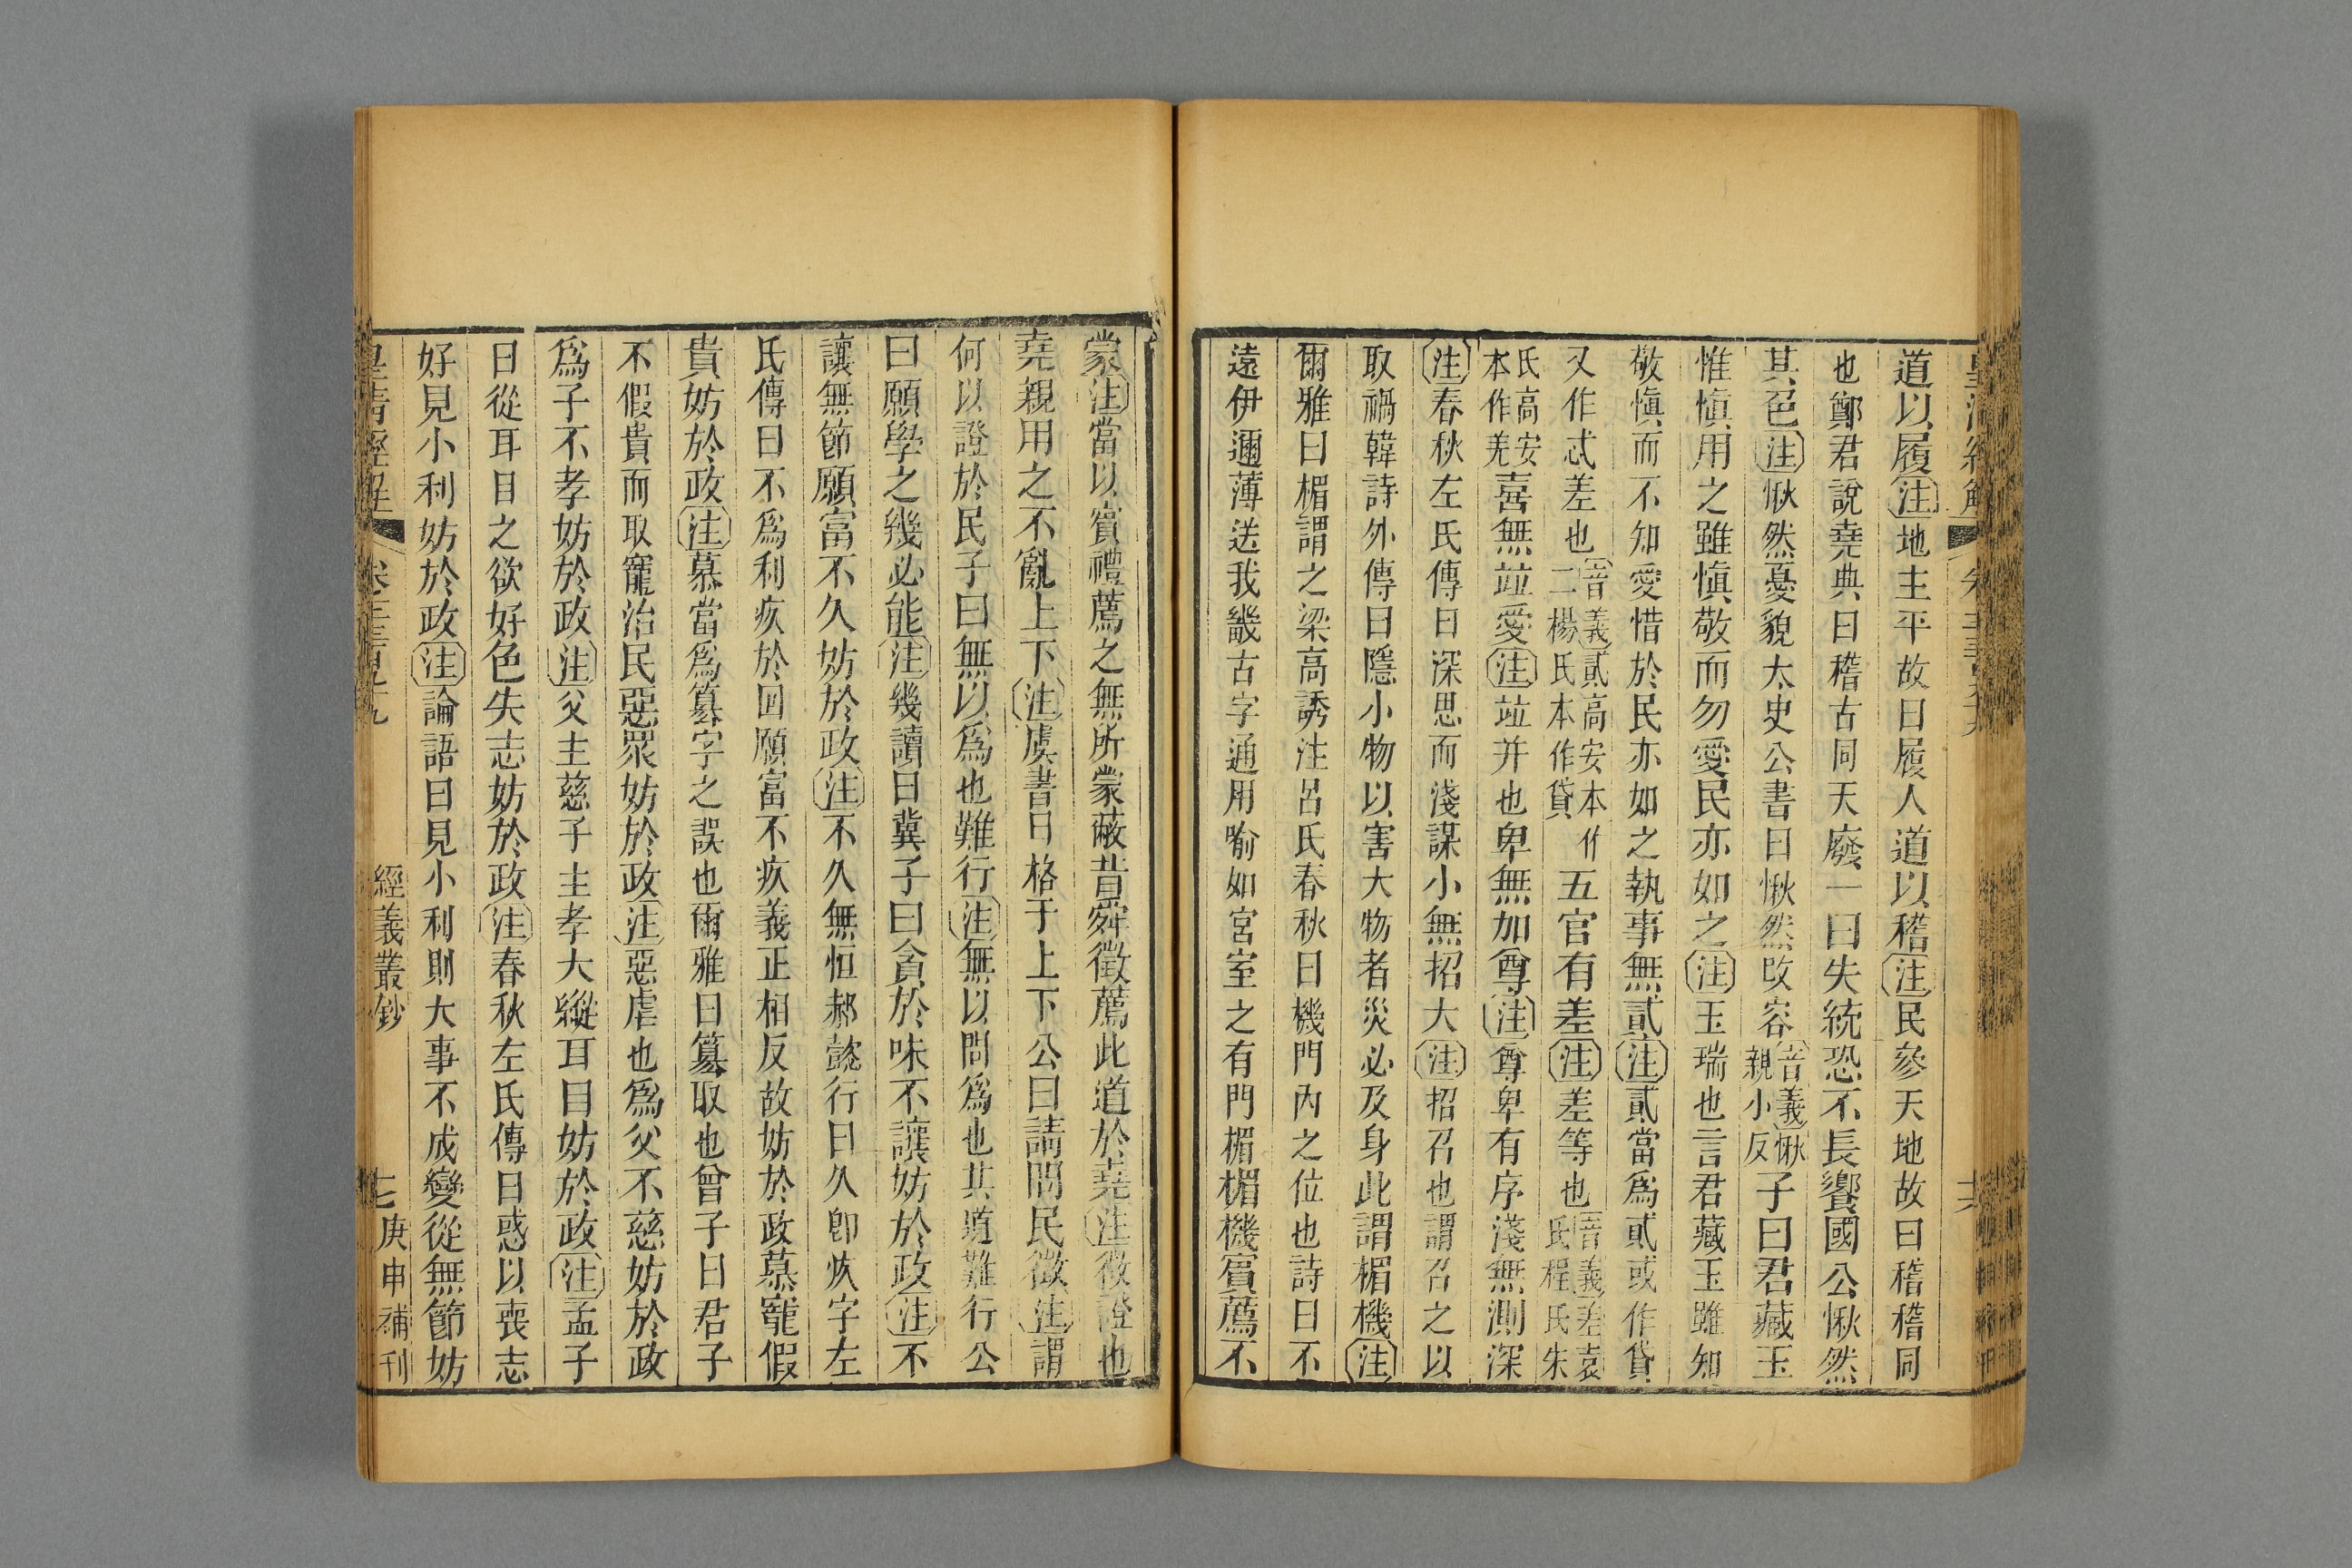 道以履注地主平故曰履人道以稽注民參天地故曰稽稽同
也鄭君說堯典曰稽古同天廢一曰失統恐不長饗國公愀然
其色注愀然憂貌太史公書曰愀然改容音義愀親小反子曰君藏玉
惟愼用之雖愼敬而勿愛民亦如之注玉瑞也言君藏玉雖知
敬愼而不知愛惜於民亦如之執事無貳注貳當爲貳或作貸
又作忒差也音義貳高安本作二楊氏本作貸五官有差注差等也音義差袁氏程氏朱
氏高安本作羌喜無竝愛注竝并也卑無加尊注尊卑有序淺無測深
注春秋左氏傳曰深思而淺謀小無招大注招召也謂召之以
取禍韓詩外傳曰隱小物以害大物者災必及身此謂楣機注
爾雅曰楣謂之梁高誘注呂氏春秋曰機門內之位也詩曰不
遠伊邇薄送我畿古字通用喻如宮室之有門楣楣機賓薦不
蒙注當以賓禮薦之無所蒙蔽昔舜徵薦此道於堯注徵證也
堯親用之不亂上下注虞書曰格于上下公曰請問民徵注謂
何以證於民子曰無以爲也難行注無以問爲也其道難行公
曰願學之幾必能注幾讀曰冀子曰貪於味不讓妨於政注不
讓無節願富不久妨於政注不久無恒郝懿行曰久卽疚字左
氏傳曰不爲利疚於回願富不疚義正相反故妨於政慕寵假
貴妨於政注慕當爲篡字之誤也爾雅曰篡取也曾子曰君子
不假貴而取寵治民惡眾妨於政注惡虐也爲父不慈妨於政
爲子不孝妨於政注父主慈子主孝大縱耳目妨於政注孟子
曰從耳目之欲好色失志妨於政注春秋左氏傳曰惑以喪志
好見小利妨於政注論語曰見小利則大事不成變從無節妨
皇清經解
經義叢鈔
七
庚申補刊